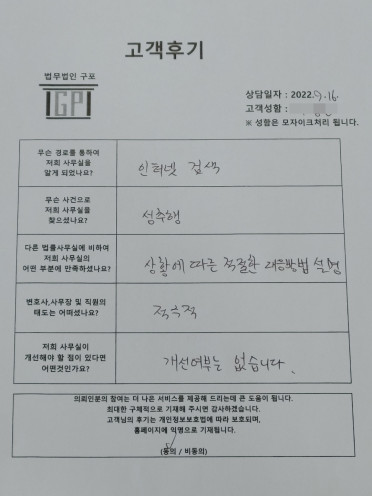 고객후기
법무법인 구포
IGPI
상담일자 : 2022. 9. 16.
고객성함 :
※ 성함은 모자이크처리 됩니다.
무슨 경로를 통하여
저희 사무실을
알게 되었나요?
인터넷 검색
무슨 사건으로
저희 사무실을
찾으셨나요?
성추행
다른 법률사무실에 비하여
저희 사무실의
어떤 부분에 만족하셨나요?
상황에 따른 적절한 대응방법 설명
변호사,사무장 및 직원의
태도는 어떠셨나요?
적극적
저희 사무실이
개선해야 할 점이 있다면
어떤것인가요?
개선여부는 없습니다.
의뢰인분의 참여는 더 나은 서비스를 제공해 드리는데 큰 도움이 됩니다.
최대한 구체적으로 기재해 주시면 감사하겠습니다.
고객님의 후기는 개인정보보호법에 따라 보호되며,
홈페이지에 익명으로 기재됩니다.
(동의 / 비동의)